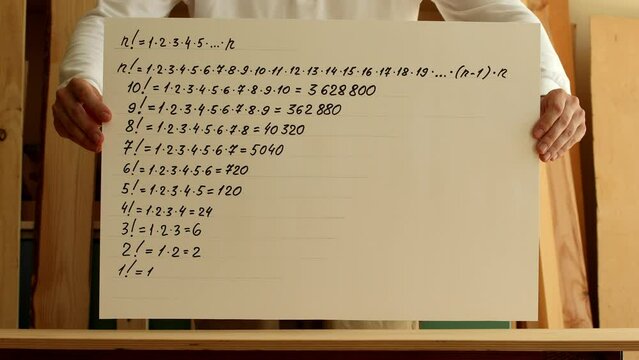 n! = 1·2·3·4·5·...·n
n! = 1·2·3·4·5·6·7·8·9·10·11·12·13·14·15·16·17·18·19·...·(n-1)·n
10! = 1·2·3·4·5·6·7·8·9·10 = 3 628 800
9! = 1·2·3·4·5·6·7·8·9 = 362 880
8! = 1·2·3·4·5·6·7·8 = 40 320
7! = 1·2·3·4·5·6·7 = 5040
6! = 1·2·3·4·5·6 = 720
5! = 1·2·3·4·5 = 120
4! = 1·2·3·4 = 24
3! = 1·2·3 = 6
2! = 1·2 = 2
1! = 1